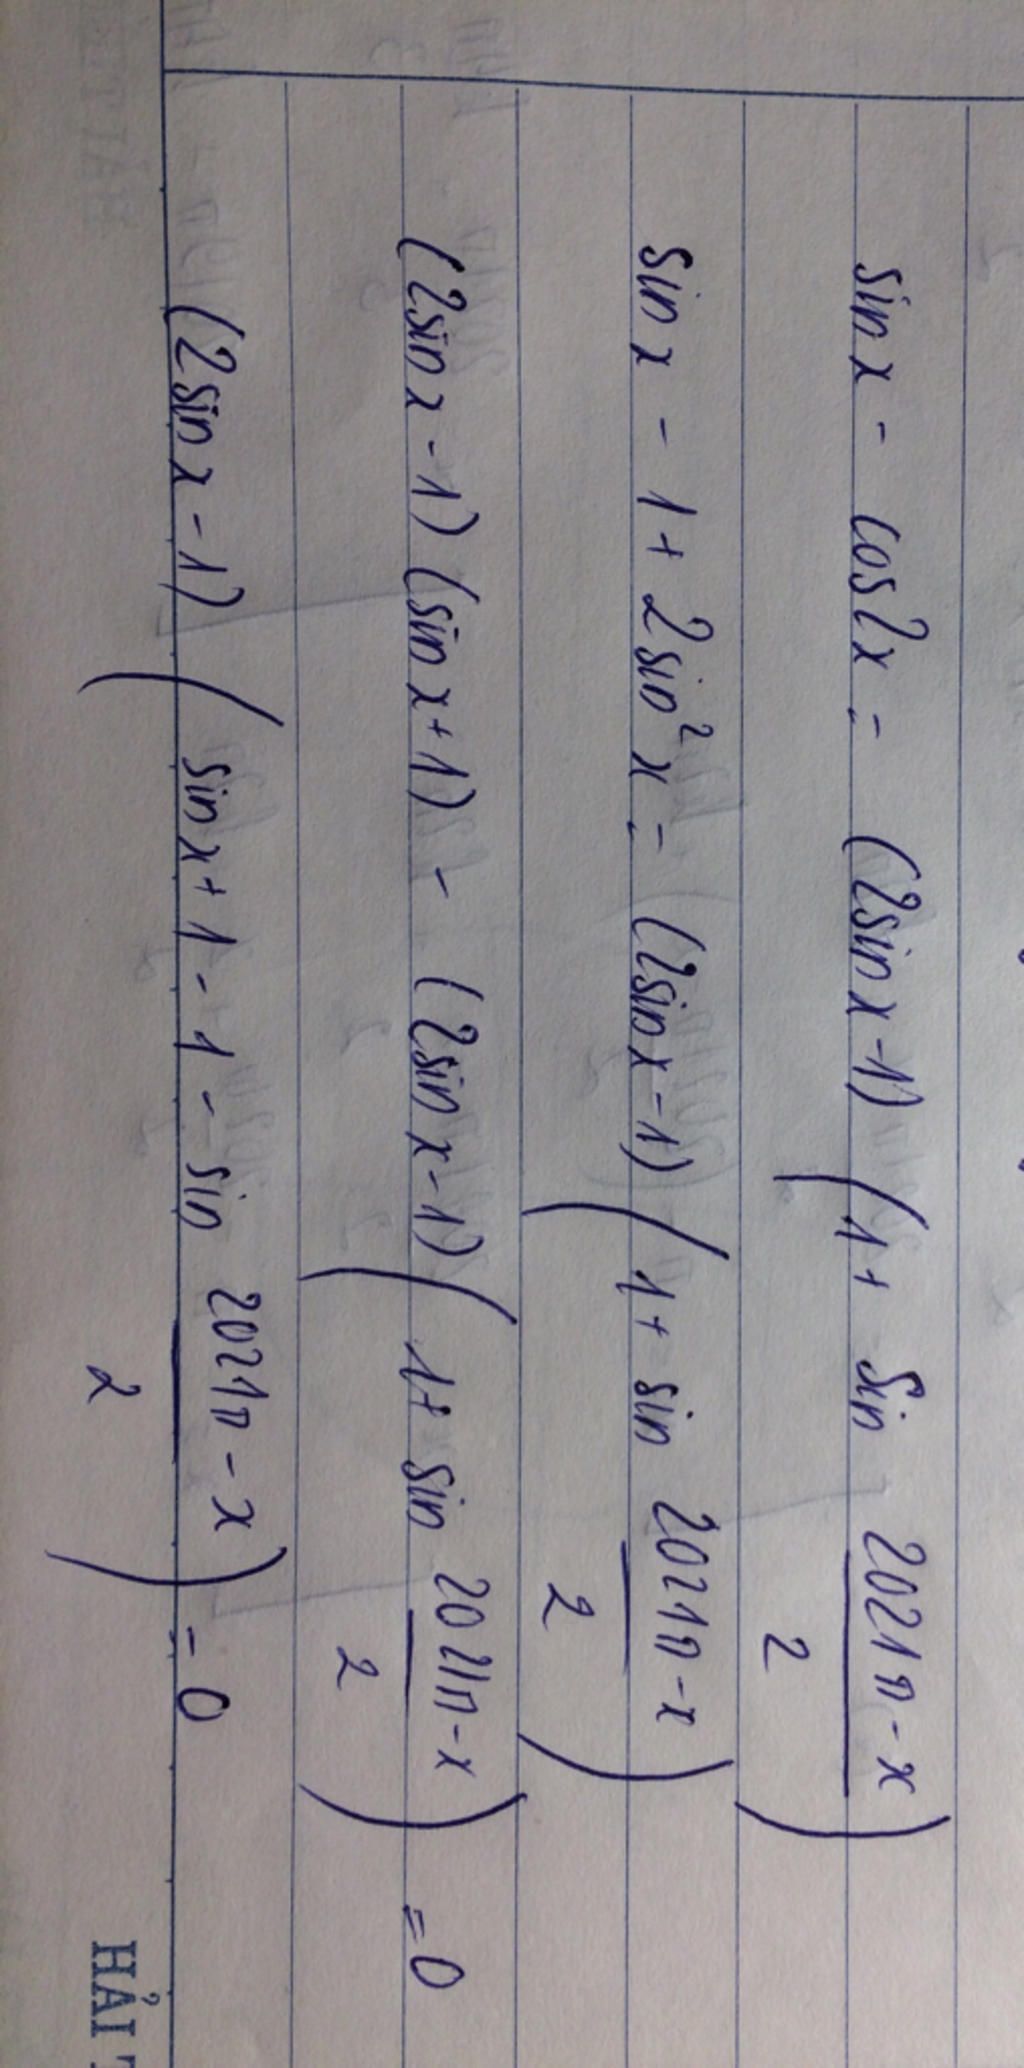 sin x - cos2x = (2sin x - 1) (1 + sin (2021π - x)/2)
sin x - 1 + 2sin² x = (2sin x - 1) (1 + sin (2021π - x)/2)
(2sin x - 1) (sin x + 1) - (2sin x - 1) (1 + sin (2021π - x)/2) = 0
(2sin x - 1) (sin x + 1 - 1 - sin (2021π - x)/2) = 0
HẢI